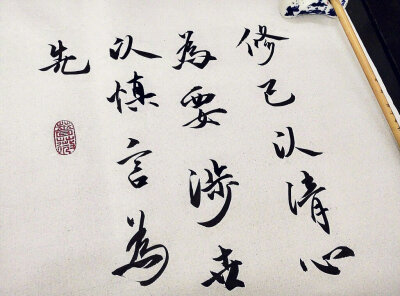 修己以清心
為要涉世
以慎言為
先